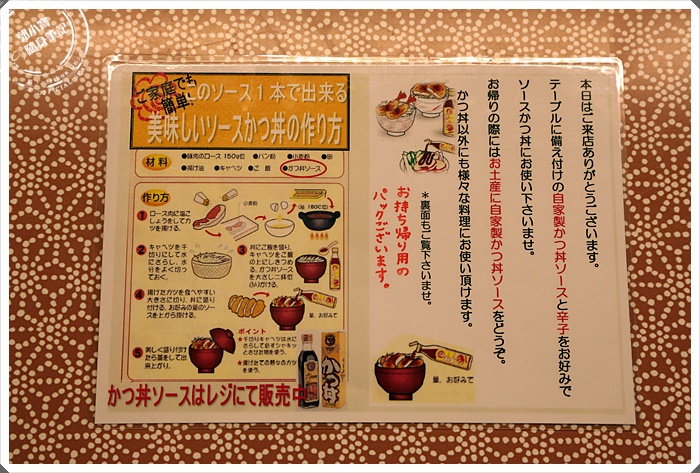 本日はご来店ありがとうございます。
テーブルに備え付けの自家製かつ丼ソースと辛子をお好みで
ソースかつ丼にお使い下さいませ。
お帰りの際にはお土産に自家製かつ丼ソースをどうぞ。
かつ丼以外にも様々な料理にお使い頂けます。
＊裏面もご覧下さいませ。
お持ち帰り用の
パックございます。
量、お好みで
ご家庭でも
簡単!
このソース1本で出来る
美味しいソースかつ丼の作り方
材料
●豚肉のロース 150g位 ●パン粉 ●小麦粉 ●卵
●揚げ油 ●キャベツ ●ご飯 ●かつ丼ソース
作り方
1 ロース肉に塩こ
しょうをしてカ
ツを揚げる。
小麦粉
卵
油(180℃位)
2 キャベツを千
切りにして水
にさらし、水
分をよく切っ
ておく。
3 丼にご飯を盛り、
キャベツをご飯
の上にしきつめ
る。かつ丼ソース
を大さじ二杯位
ふりかける。
4 揚げたカツを食べやすい
大きさに切り、丼に盛り
付ける。お好みの量のソー
スを上から掛ける。
量、お好みで
5 美しく盛り付け
たら蓋をして出
来上がり。
ポイント
★千切りキャベツは水に
さらして必ずシャキッ
とさせた物を使う。
★揚げたての熱々のカツ
を使う。
かつ丼
かつ丼ソースはレジにて販売中